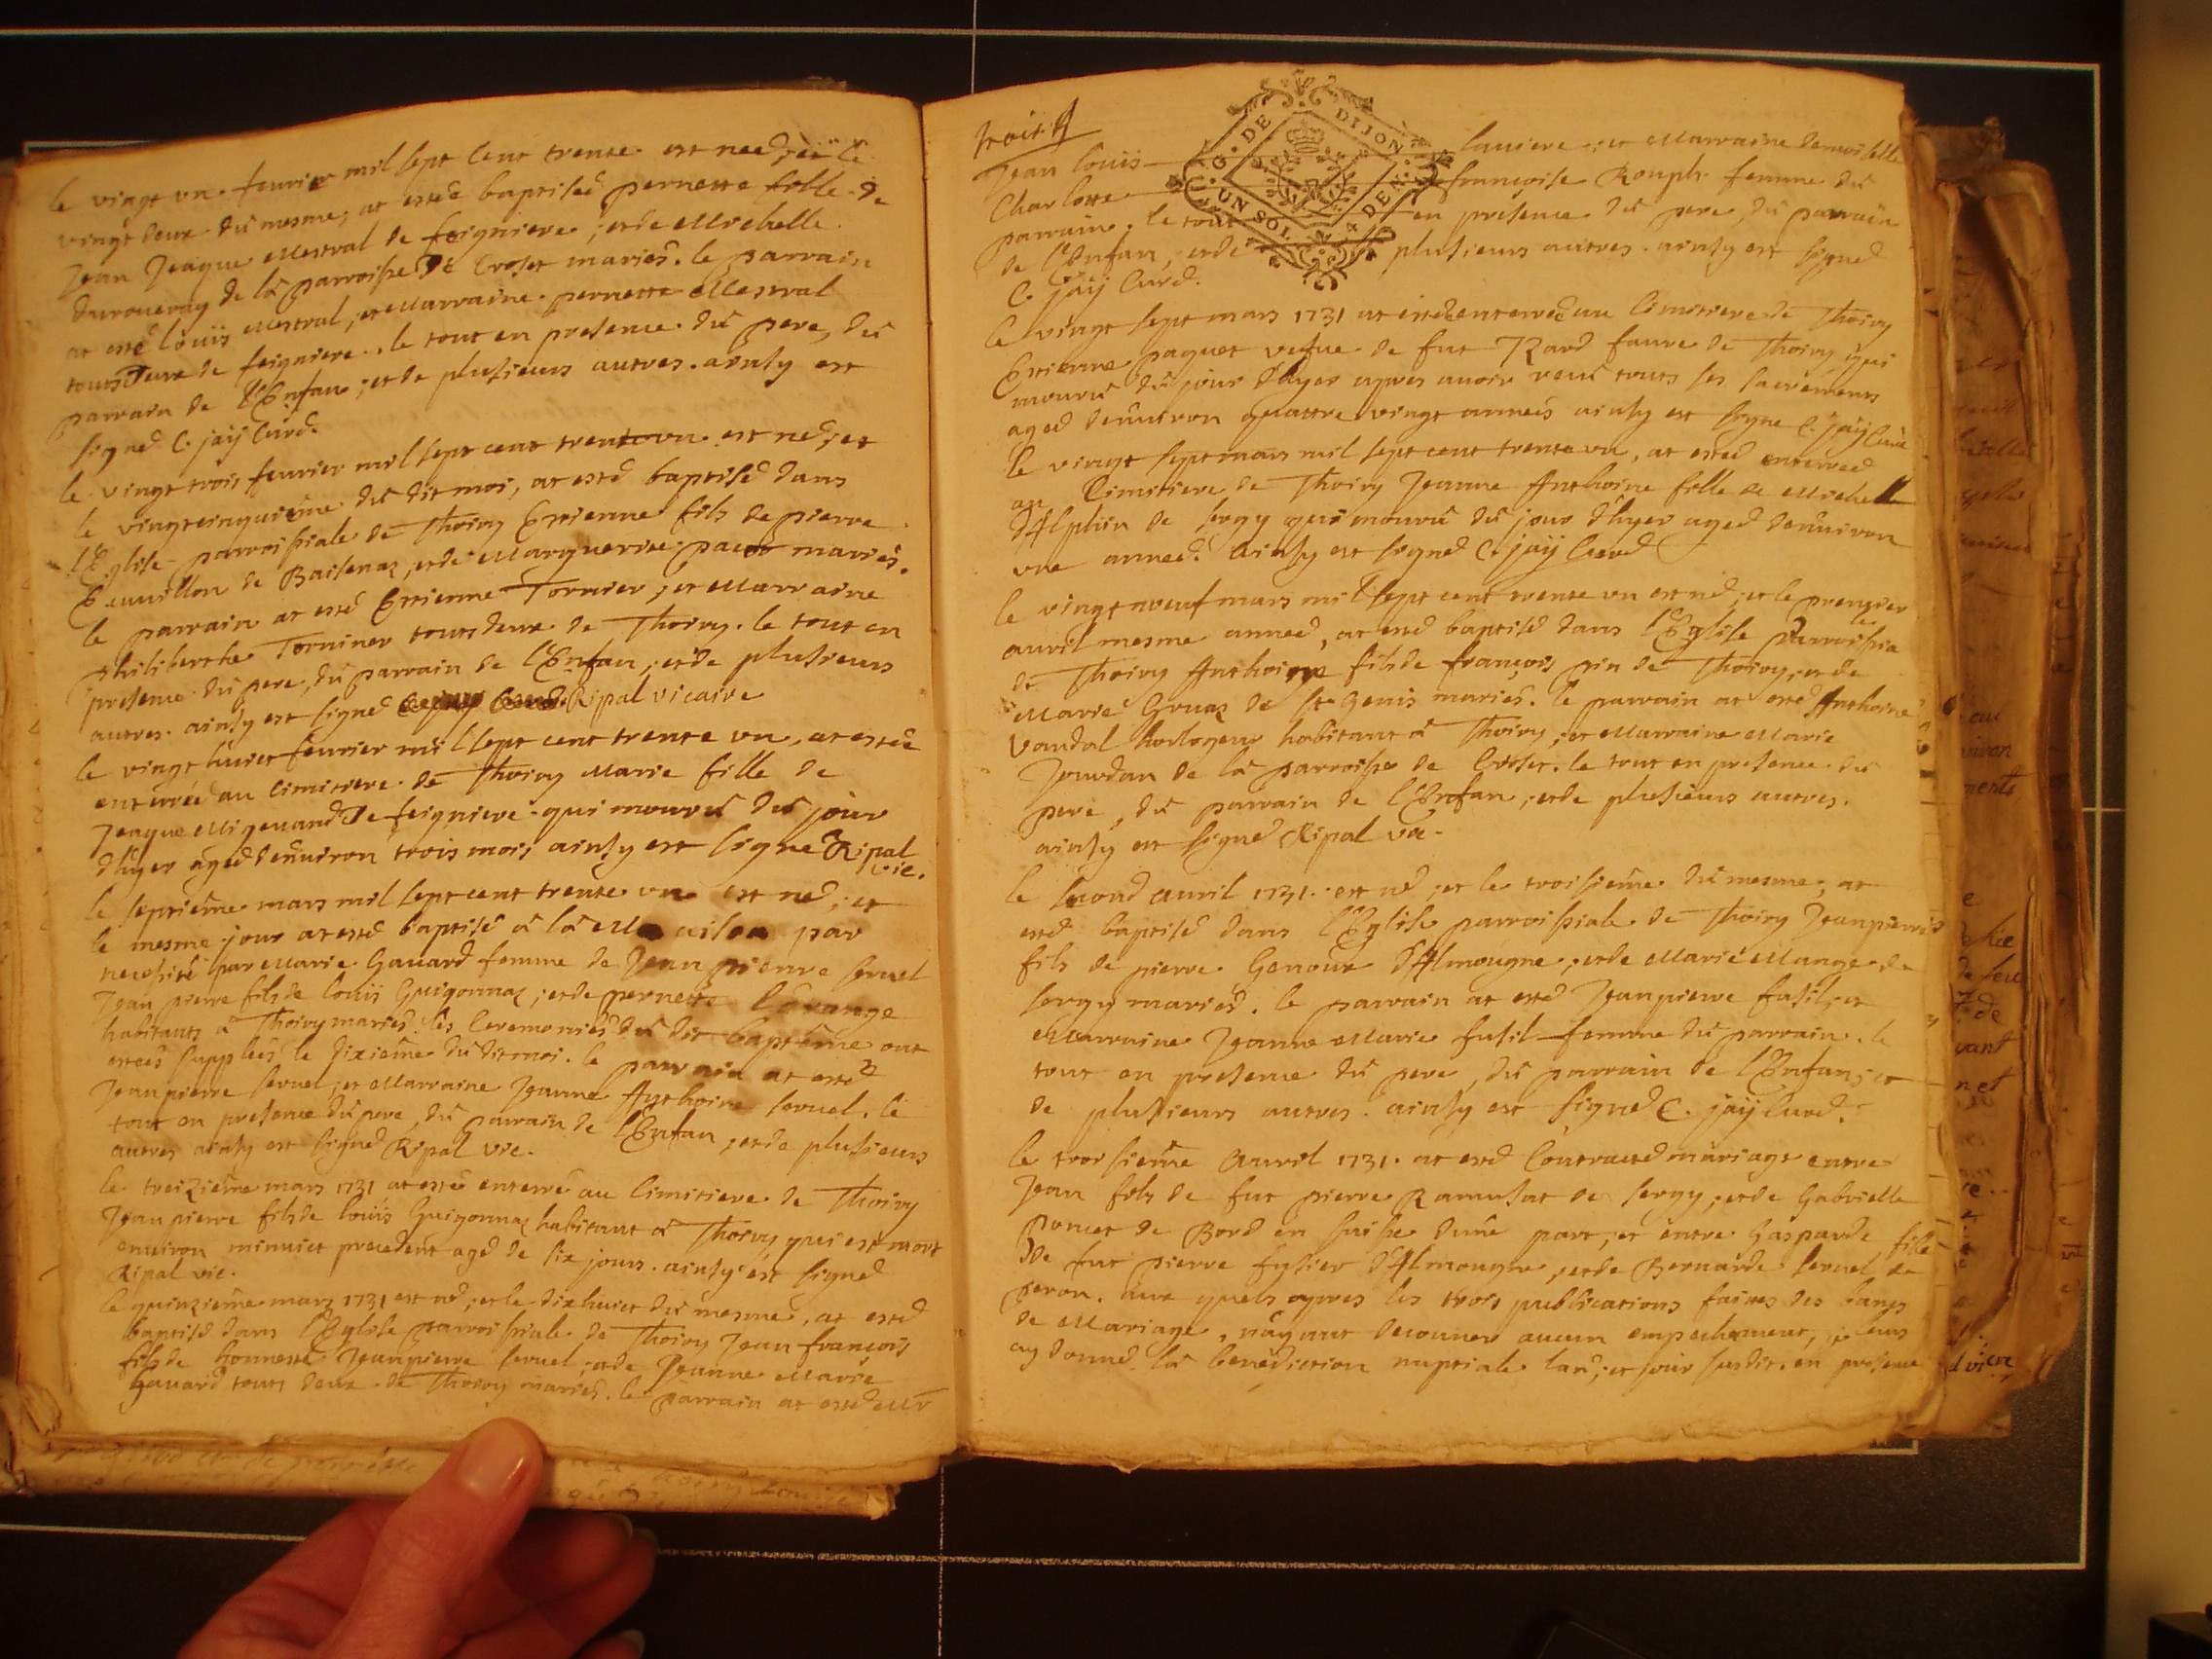 le vingt un feurier mil sept cent trente est neé, et le
vingt deux du mesme, at esteé baptiseé pernette fille de
Jean Jeaque Mestral de feigniere, et de Michelle
Durouenay de la parroisse de Croset mariés. le parrain
at esté Loüis Mestral, et Marraine pernette Mestral
touts deux de feigniere. le tout en presence du pere, du
parrain de l'Enfan, et de plusieurs autres. ainsy est
signé C. jaÿ Curé.
le vingt trois feurier mil sept cent trente vn est né, et
le vingtcinquieme du dit moi, at esté baptisé dans
l'Eglise parroissiale de Thoiry Estienne fils de pierre
de Baisenaz, et de Marguerite mariés.
le parrain at esté Estienne Tornier, et Marraine
philiberthe Torniner touts deux de Thoiry. le tout en
presence du pere, du parrain de l'Enfan, et de plusieurs
autres. ainsy est signé Ripal vicaire
le vingt huict feurier mil sept cent trente vn, at esteé
enterreé au Cimitiere de Thoiry Marie fille de
Jeaque Migeuand de feigniere qui mourut du jour
d'hyer ageé d'enuiron trois mois ainsy est signé Ripal
vic.
le septiême mars mil sept cent trente vn est né, et
le mesme jour at esté baptisé â la Maison par
necessité par Marie Gauard femme de Jean pierre seruel
Jean pierre fils de Loüis Guigonnaz, et de pernette Lorange
habitants â Thoiry mariés. les Ceremonies du dit baptême ont
estées suppleés le dixiême du dit moi. le parrain at esté
Jean pierre seruel, et Marraine Jeanne Anthoine seruel. le
tout en presence du pere, du parrain de l'Enfan, et de plusieurs
autres ainsy est signé Ripal vic.
le treiziême mars 1731 at esté enterré au Cimitiere de Thoiry
Jean pierre fils de Loüis Guigonnaz habitant â Thoiry, qui est mort
enuiron minuict precedent agé de six jours. ainsy est signé
Ripal vic.
le quinziême mars 1731 est né, et le dixhuict du mesme, at esté
baptisé dans l'Eglise parroissiale de Thoiry Jean françois
fils de honneste Jean pierre seruel, et de Jeanne Marie
Gauard touts deux de Thoiry mariés. le parrain at esté Mr
trois
Jean Loüis laniere, et Marraine Demoiselle
Charlotte françoise Rouph femme du
parrain. le tout en présence du pere, du parrain
de l'Enfan, et de plusieurs autres. ainsy est signé
C. jaÿ Curé.
G. DE DIJON
UN SOL 4 DEN.
le vingt sept mars 1731 at esté enterreé au Cimitiere de Thoiry
Estienne paquet vefue de fut faure de Thoiry qui
mourut du jour d'hyer apres auoir receu touts les sacrements
ageé d'enuiron quattre vingt anneés ainsy est signé C. jaÿ Curé
le vingt sept mars mil sept cent trente vn, at esteé enterreé
au Cimitiere de Thoiry Jeanne Anthoine fille de Michelle
d'Alphin de sergy qui mourut du jour d'hyer ageé d'enuiron
vne anneé. ainsy est signé C. jaÿ Curé
le vingt neuf mars mil sept cent trente vn est né, et le premier
auril mesme anneé, at esté baptisé dans l'Eglise parroissiale
de Thoiry Anthoine fils de françois pin de Thoiry, et de
Marie Gruaz de st genis mariés. le parrain at esté Anthoine
Vandal horlogeur habitant â Thoiry, et Marraine Marie
Jourdan de la parroisse de Croset. le tout en presence du
pere, du parrain de l'Enfan, et de plusieurs autres.
ainsy est signé Ripal vic.
le second auril 1731. est né, et le troisiême du mesme, at
esté baptisé dans l'Eglise parroissiale de Thoiry Jean pierre
fils de pierre Genoux d'Almougne, et de Marie Mange de
sergy mariés. le parrain at esté Jean pierre fusil, et
Marraine Jeanne Marie fusil femme du parrain. le
tout en presence du pere, du parrain de l'Enfan, et
de plusieurs autres. ainsy est signé C. jaÿ Curé.
le troisiême auril 1731. at esté Contracté mariage entre
Jean fils de fut pierre Ramusat de sergy, et de Gabrielle
poncet de Bord en suisse d'une part, et entre Gasparde fille
de fut pierre fusier d'Almougne, et de Bernarde seruel de
peron. aux quels apres les trois publications faites des bancs
de Mariage, n'ayant decouuert aucun empechement, je leurs
ay donné la benediction nuptiale l'an, et jour susdit. en presence